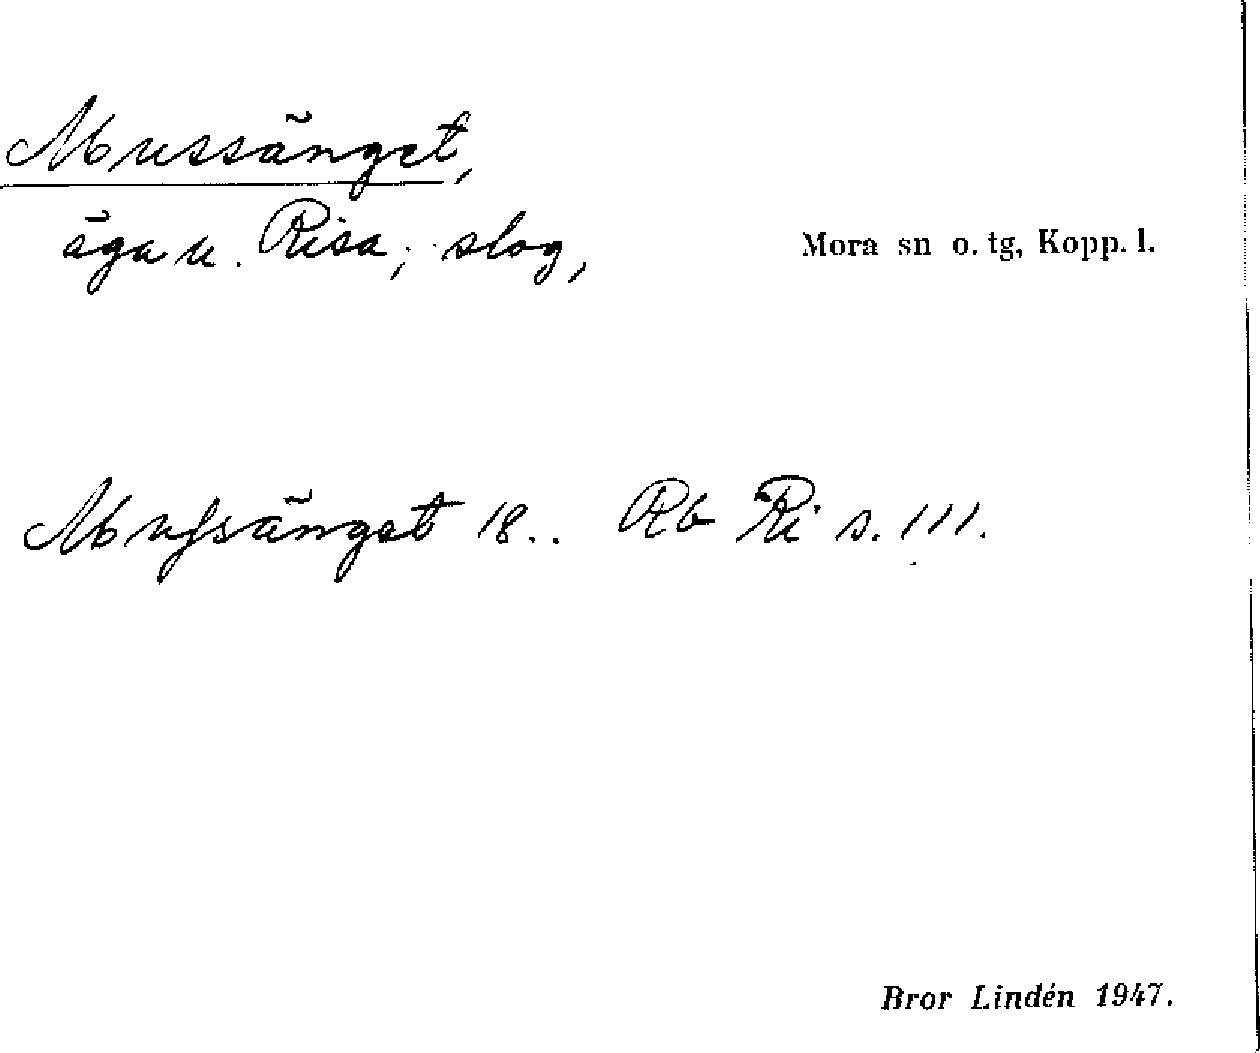 Mussänget,
äga u. Risa; slog,
Mora sn o. tg, Kopp. l.
Muſsänget 18.. Rb Ri s. 111.
Bror Lindén 1947.